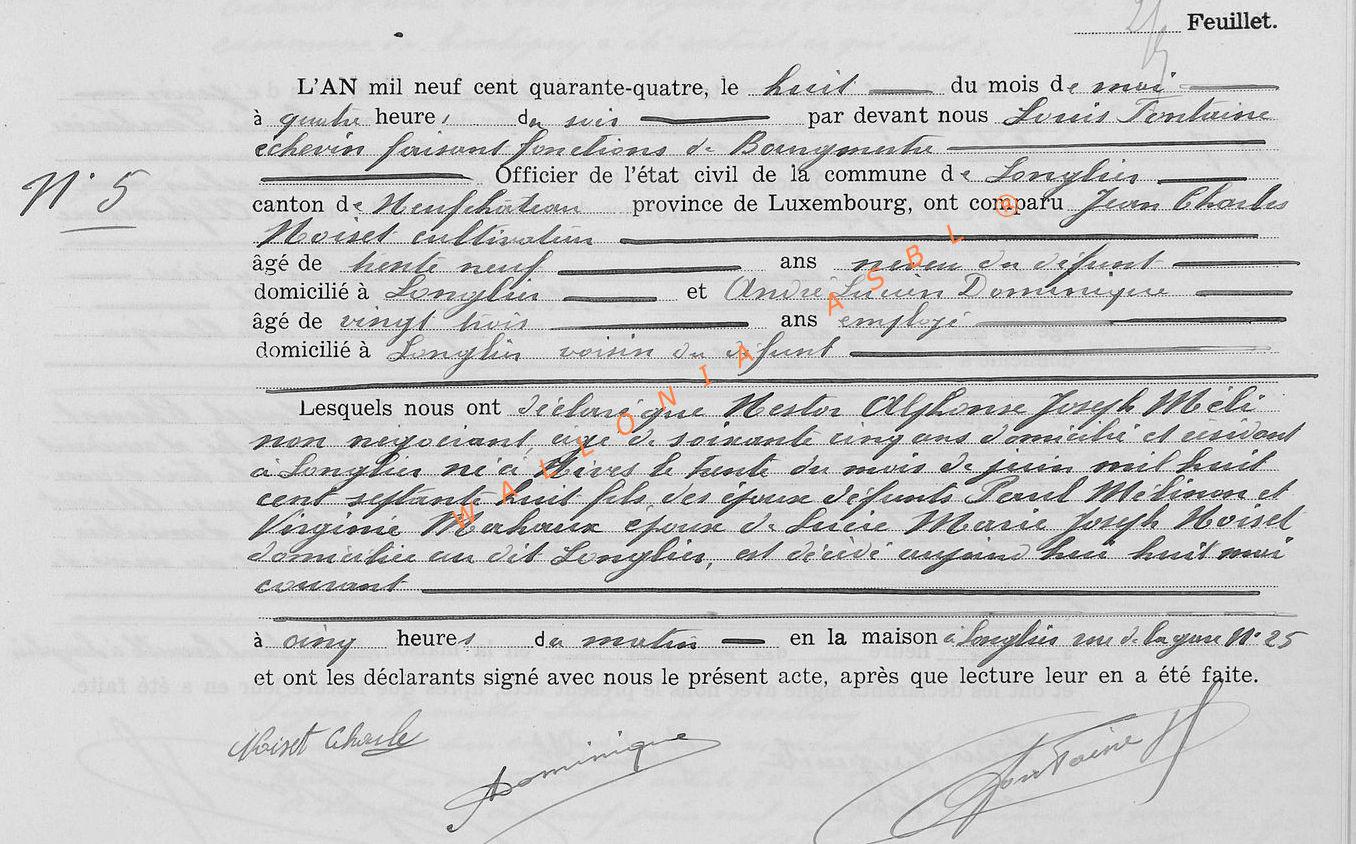 Feuillet.
L'AN mil neuf cent quarante-quatre, le huit du mois de mai
à quatre heures du soir par devant nous Louis Fontaine
échevin faisant fonctions de Bourgmestre
Officier de l'état civil de la commune de Longlier
N° 5
canton de Neufchâteau province de Luxembourg, ont comparu Jean Charles
Noiset cultivateur
âgé de trente neuf ans neveu du défunt
domicilié à Longlier et André Lucien Dominique
âgé de vingt trois ans employé
domicilié à Longlier voisin du défunt
Lesquels nous ont déclaré que Nestor Alphonse Joseph Méli
non négociant âgé de soixante cinq ans domicilié et résidant
à Longlier né à le trente du mois de juin mil huit
cent septante huit fils des époux défunts Paul Mélinon et
Virginie époux de Lucie Marie Joseph Noiset
domiciliée au dit Longlier, est décédé aujourd'hui huit mai
courant
à cinq heures du matin en la maison à Longlier rue de la gare N° 25
et ont les déclarants signé avec nous le présent acte, après que lecture leur en a été faite.
Noiset Charle Dominique Fontaine
WALLONIA ASBL ®